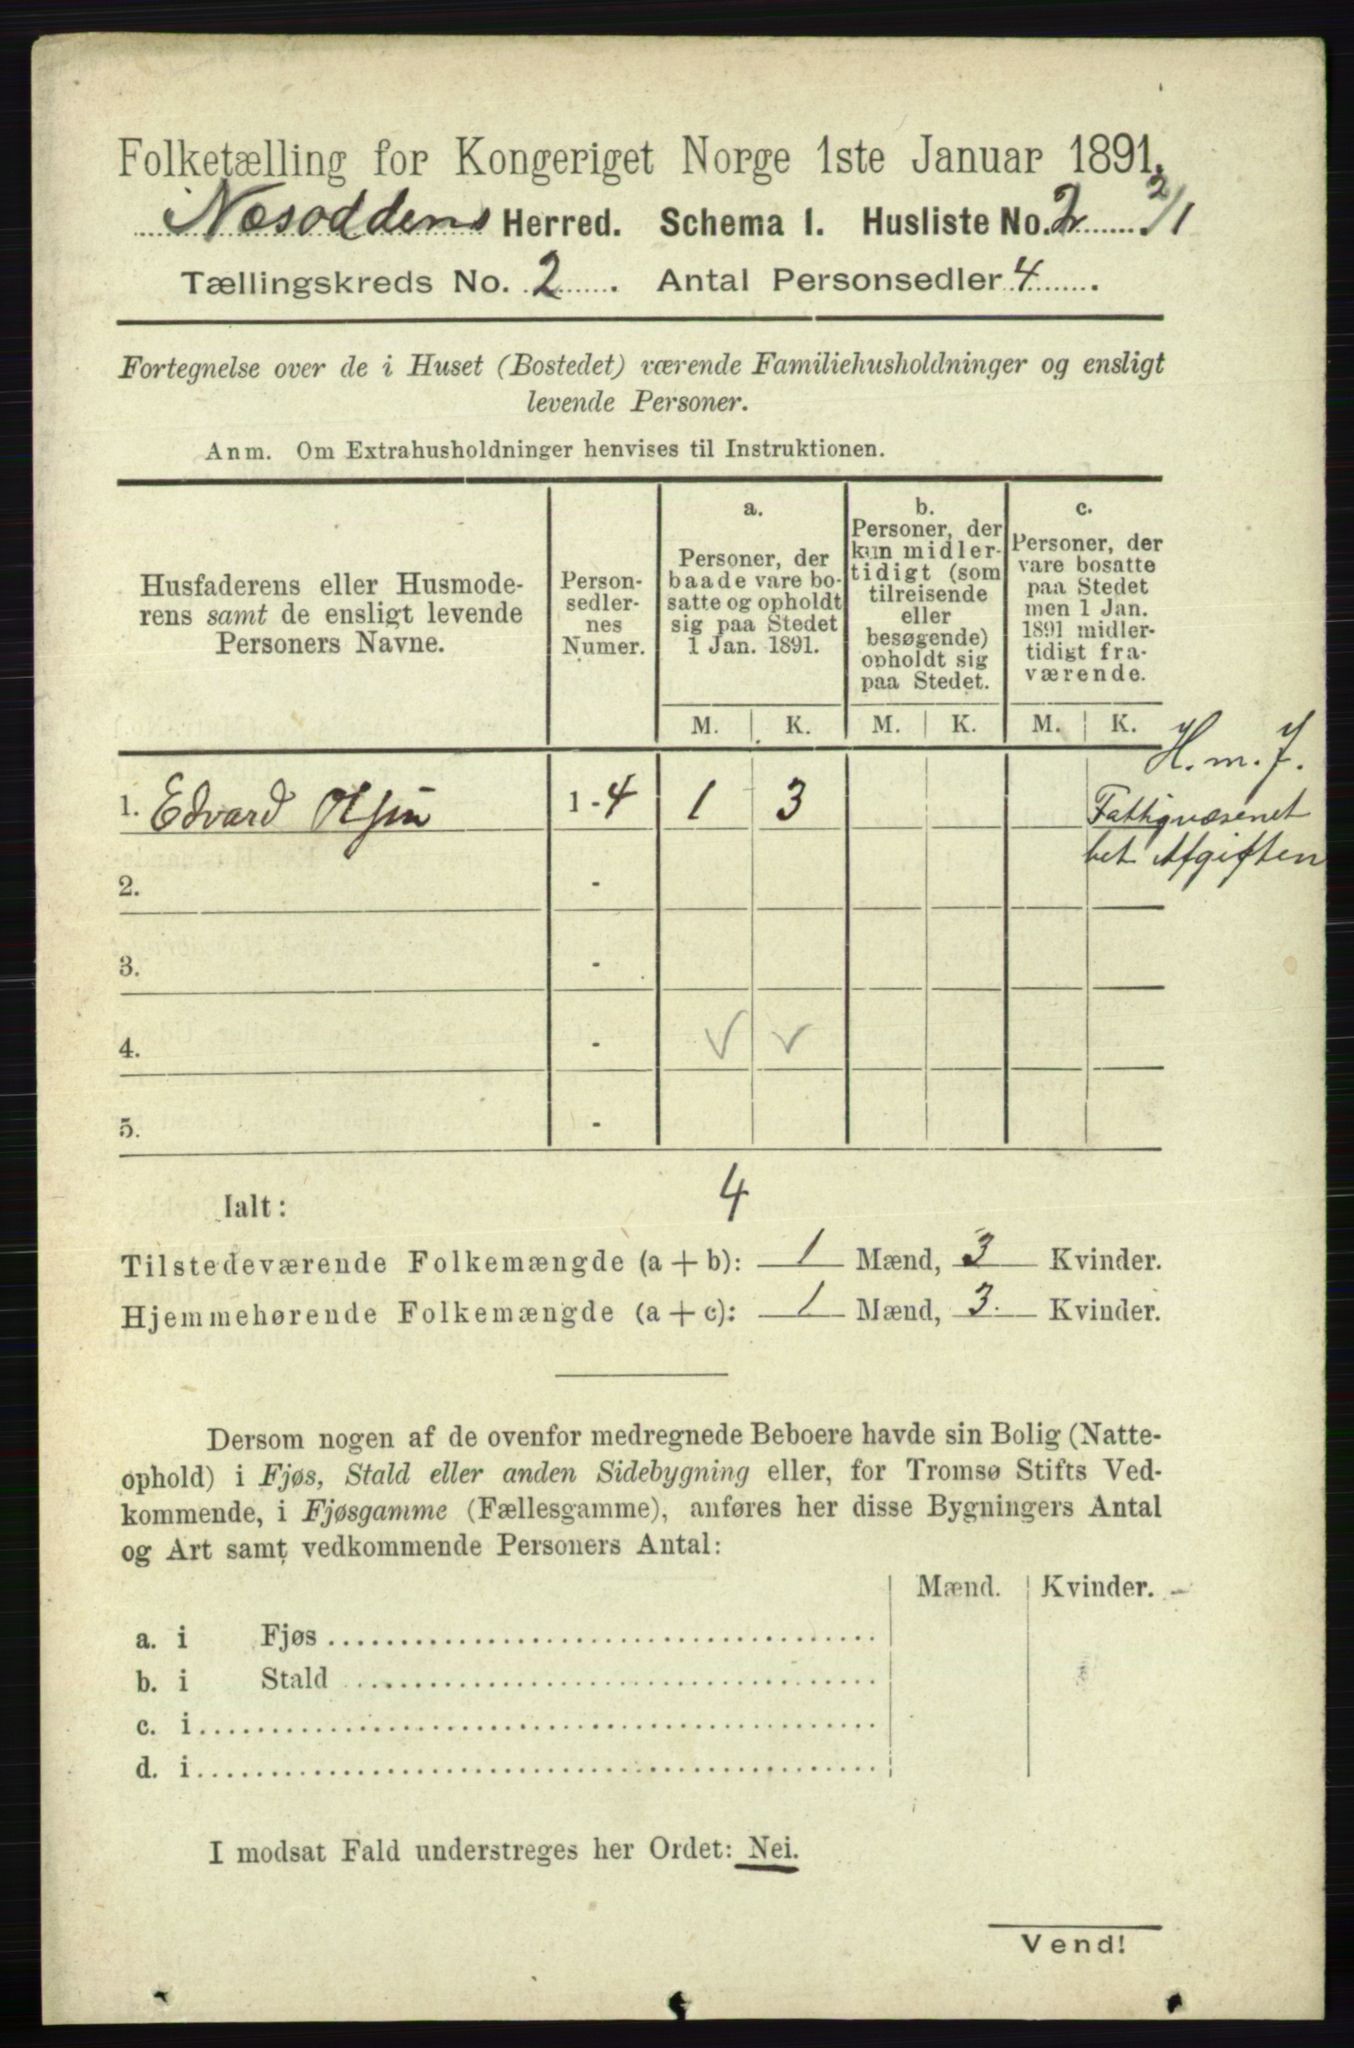 Folketælling for Kongeriget Norge 1ste Januar 1891.
Næsoddens Herred. Schema 1. Husliste No. 2 2/1
Tællingskreds No. 2. Antal Personsedler 4.
Fortegnelse over de i Huset (Bostedet) værende Familiehusholdninger og ensligt
levende Personer.
Anm. Om Extrahusholdninger henvises til Instruktionen.
Husfaderens eller Husmode-
rens samt de ensligt levende
Personers Navne.
Person-
sedler-
nes
Numer.
a.
Personer, der
baade vare bo-
satte og opholdt
sig paa Stedet
1 Jan. 1891.
b.
Personer, der
kun midler-
tidigt (som
tilreisende
eller
besøgende)
opholdt sig
paa Stedet.
c.
Personer, der
vare bosatte
paa Stedet
men 1 Jan.
1891 midler-
tidigt fra-
værende.
M. K. M. K. M. K.
H. m. J.
1. Edvard Olsen 1 - 4 1 3
Fattigvæsenet
bet Afgiften
2. -
3. -
4. -
5. -
4
Ialt:
Tilstedeværende Folkemængde (a + b): 1 Mænd, 3 Kvinder.
Hjemmehørende Folkemængde (a + c): 1 Mænd, 3. Kvinder.
Dersom nogen af de ovenfor medregnede Beboere havde sin Bolig (Natte-
ophold) i Fjøs, Stald eller anden Sidebygning eller, for Tromsø Stifts Ved-
kommende, i Fjøsgamme (Fællesgamme), anføres her disse Bygningers Antal
og Art samt vedkommende Personers Antal:
Mænd. Kvinder.
a. i Fjøs
b. i Stald
c. i
d. i
I modsat Fald understreges her Ordet: Nei.
Vend!